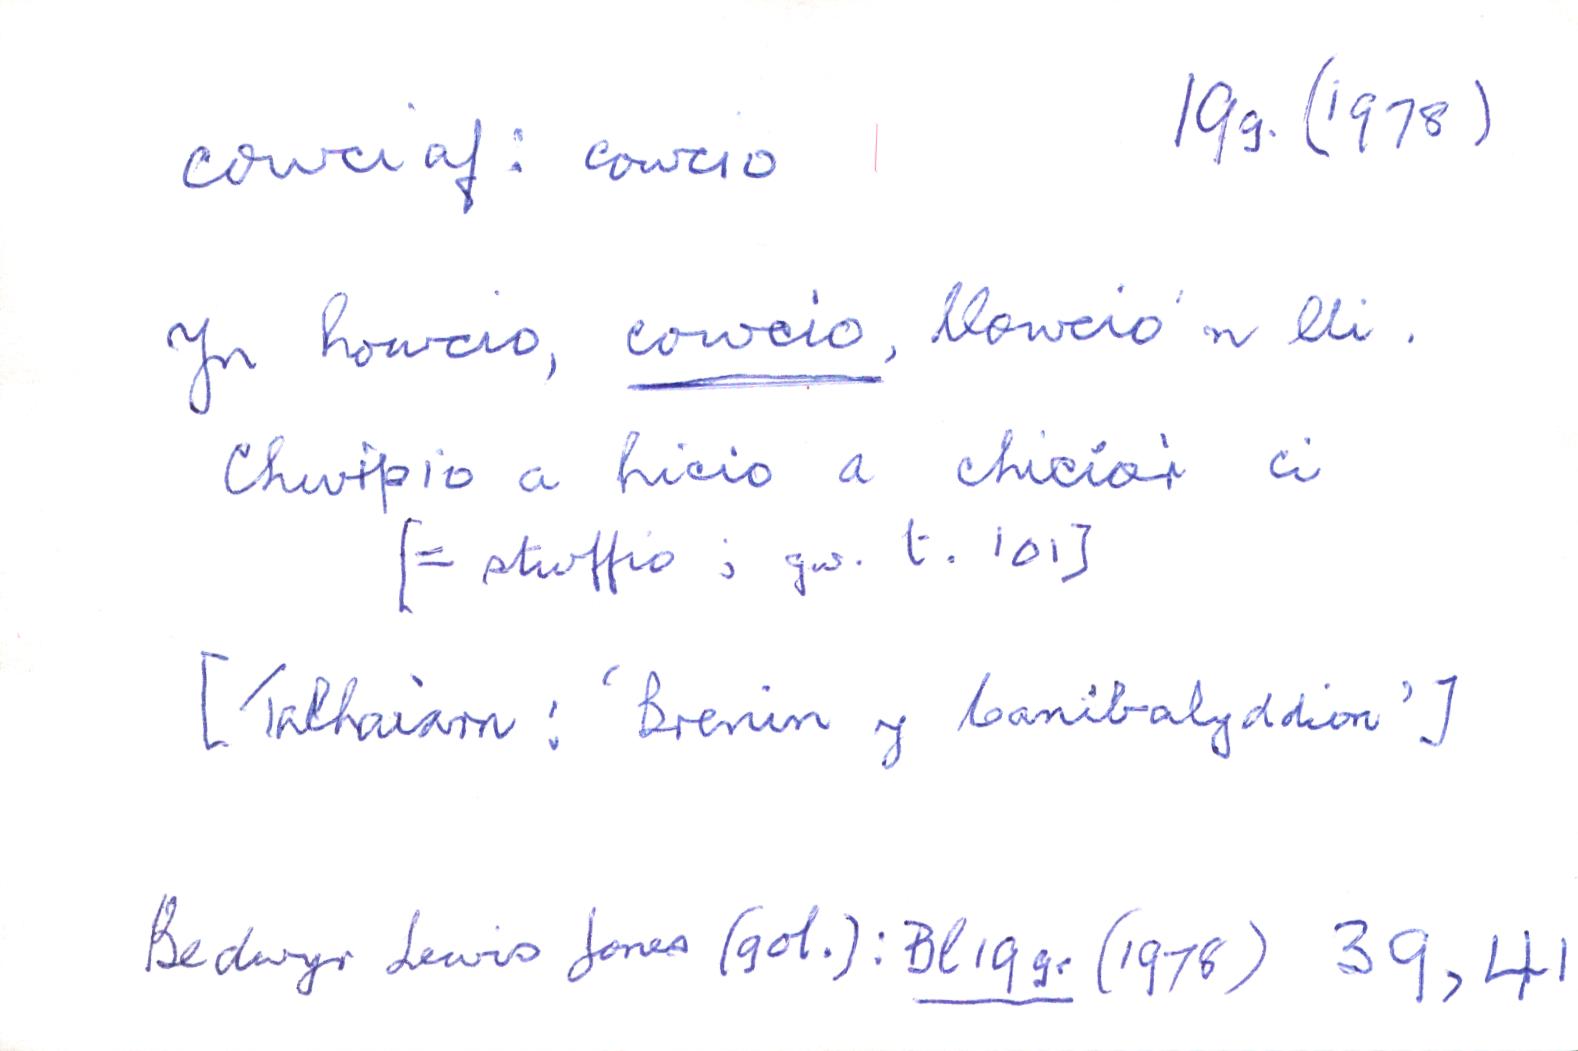 cowciaf: cowcio 19g. (1978)
Yn howcio, cowcio, llowcio'n lli.
Chwipio a hicio a chicio'r ci
[= stwffio; gw. t. 101]
[Talhaiarn: 'Brenin y Canibalyddion']
Bedwyr Lewis Jones (gol.): Bl 19 g. (1978) 39, 41